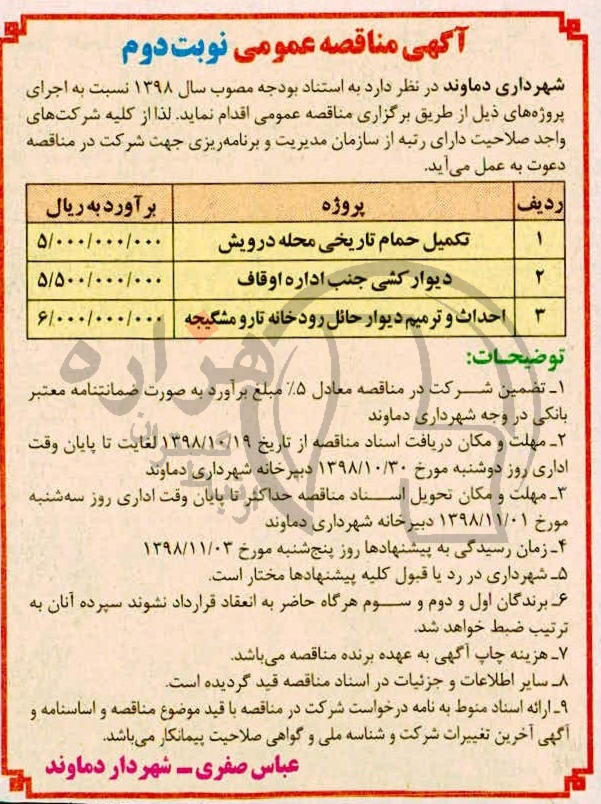 آگهی مناقصه عمومی نوبت دوم
شهرداری دماوند در نظر دارد به استناد بودجه مصوب سال ۱۳۹۸ نسبت به اجرای
پروژه‌های ذیل از طریق برگزاری مناقصه عمومی اقدام نماید. لذا از کلیه شرکت‌های
واجد صلاحیت دارای رتبه از سازمان مدیریت و برنامه‌ریزی جهت شرکت در مناقصه
دعوت به عمل می‌آید.
ردیف پروژه برآورد به ریال
۱ تکمیل حمام تاریخی محله درویش ۵/۰۰۰/۰۰۰/۰۰۰
۲ دیوارکشی جنب اداره اوقاف ۵/۵۰۰/۰۰۰/۰۰۰
۳ احداث و ترمیم دیوار حائل رودخانه تارو مشگیجه ۶/۰۰۰/۰۰۰/۰۰۰
توضیحات:
۱ـ تضمین شرکت در مناقصه معادل ۵٪ مبلغ برآورد به صورت ضمانتنامه معتبر
بانکی در وجه شهرداری دماوند
۲ـ مهلت و مکان دریافت اسناد مناقصه از تاریخ ۱۳۹۸/۱۰/۱۹ لغایت تا پایان وقت
اداری روز دوشنبه مورخ ۱۳۹۸/۱۰/۳۰ دبیرخانه شهرداری دماوند
۳ـ مهلت و مکان تحویل اسناد مناقصه حداکثر تا پایان وقت اداری روز سه‌شنبه
مورخ ۱۳۹۸/۱۱/۰۱ دبیرخانه شهرداری دماوند
۴ـ زمان رسیدگی به پیشنهادها روز پنج‌شنبه مورخ ۱۳۹۸/۱۱/۰۳
۵ـ شهرداری در رد یا قبول کلیه پیشنهادها مختار است.
۶ـ برندگان اول و دوم و سوم هرگاه حاضر به انعقاد قرارداد نشوند سپرده آنان به
ترتیب ضبط خواهد شد.
۷ـ هزینه چاپ آگهی به عهده برنده مناقصه می‌باشد.
۸ـ سایر اطلاعات و جزئیات در اسناد مناقصه قید گردیده است.
۹ـ ارائه اسناد منوط به نامه درخواست شرکت در مناقصه با قید موضوع مناقصه و اساسنامه و
آگهی آخرین تغییرات شرکت و شناسه ملی و گواهی صلاحیت پیمانکار می‌باشد.
عباس صفری ـ شهردار دماوند
هزاره